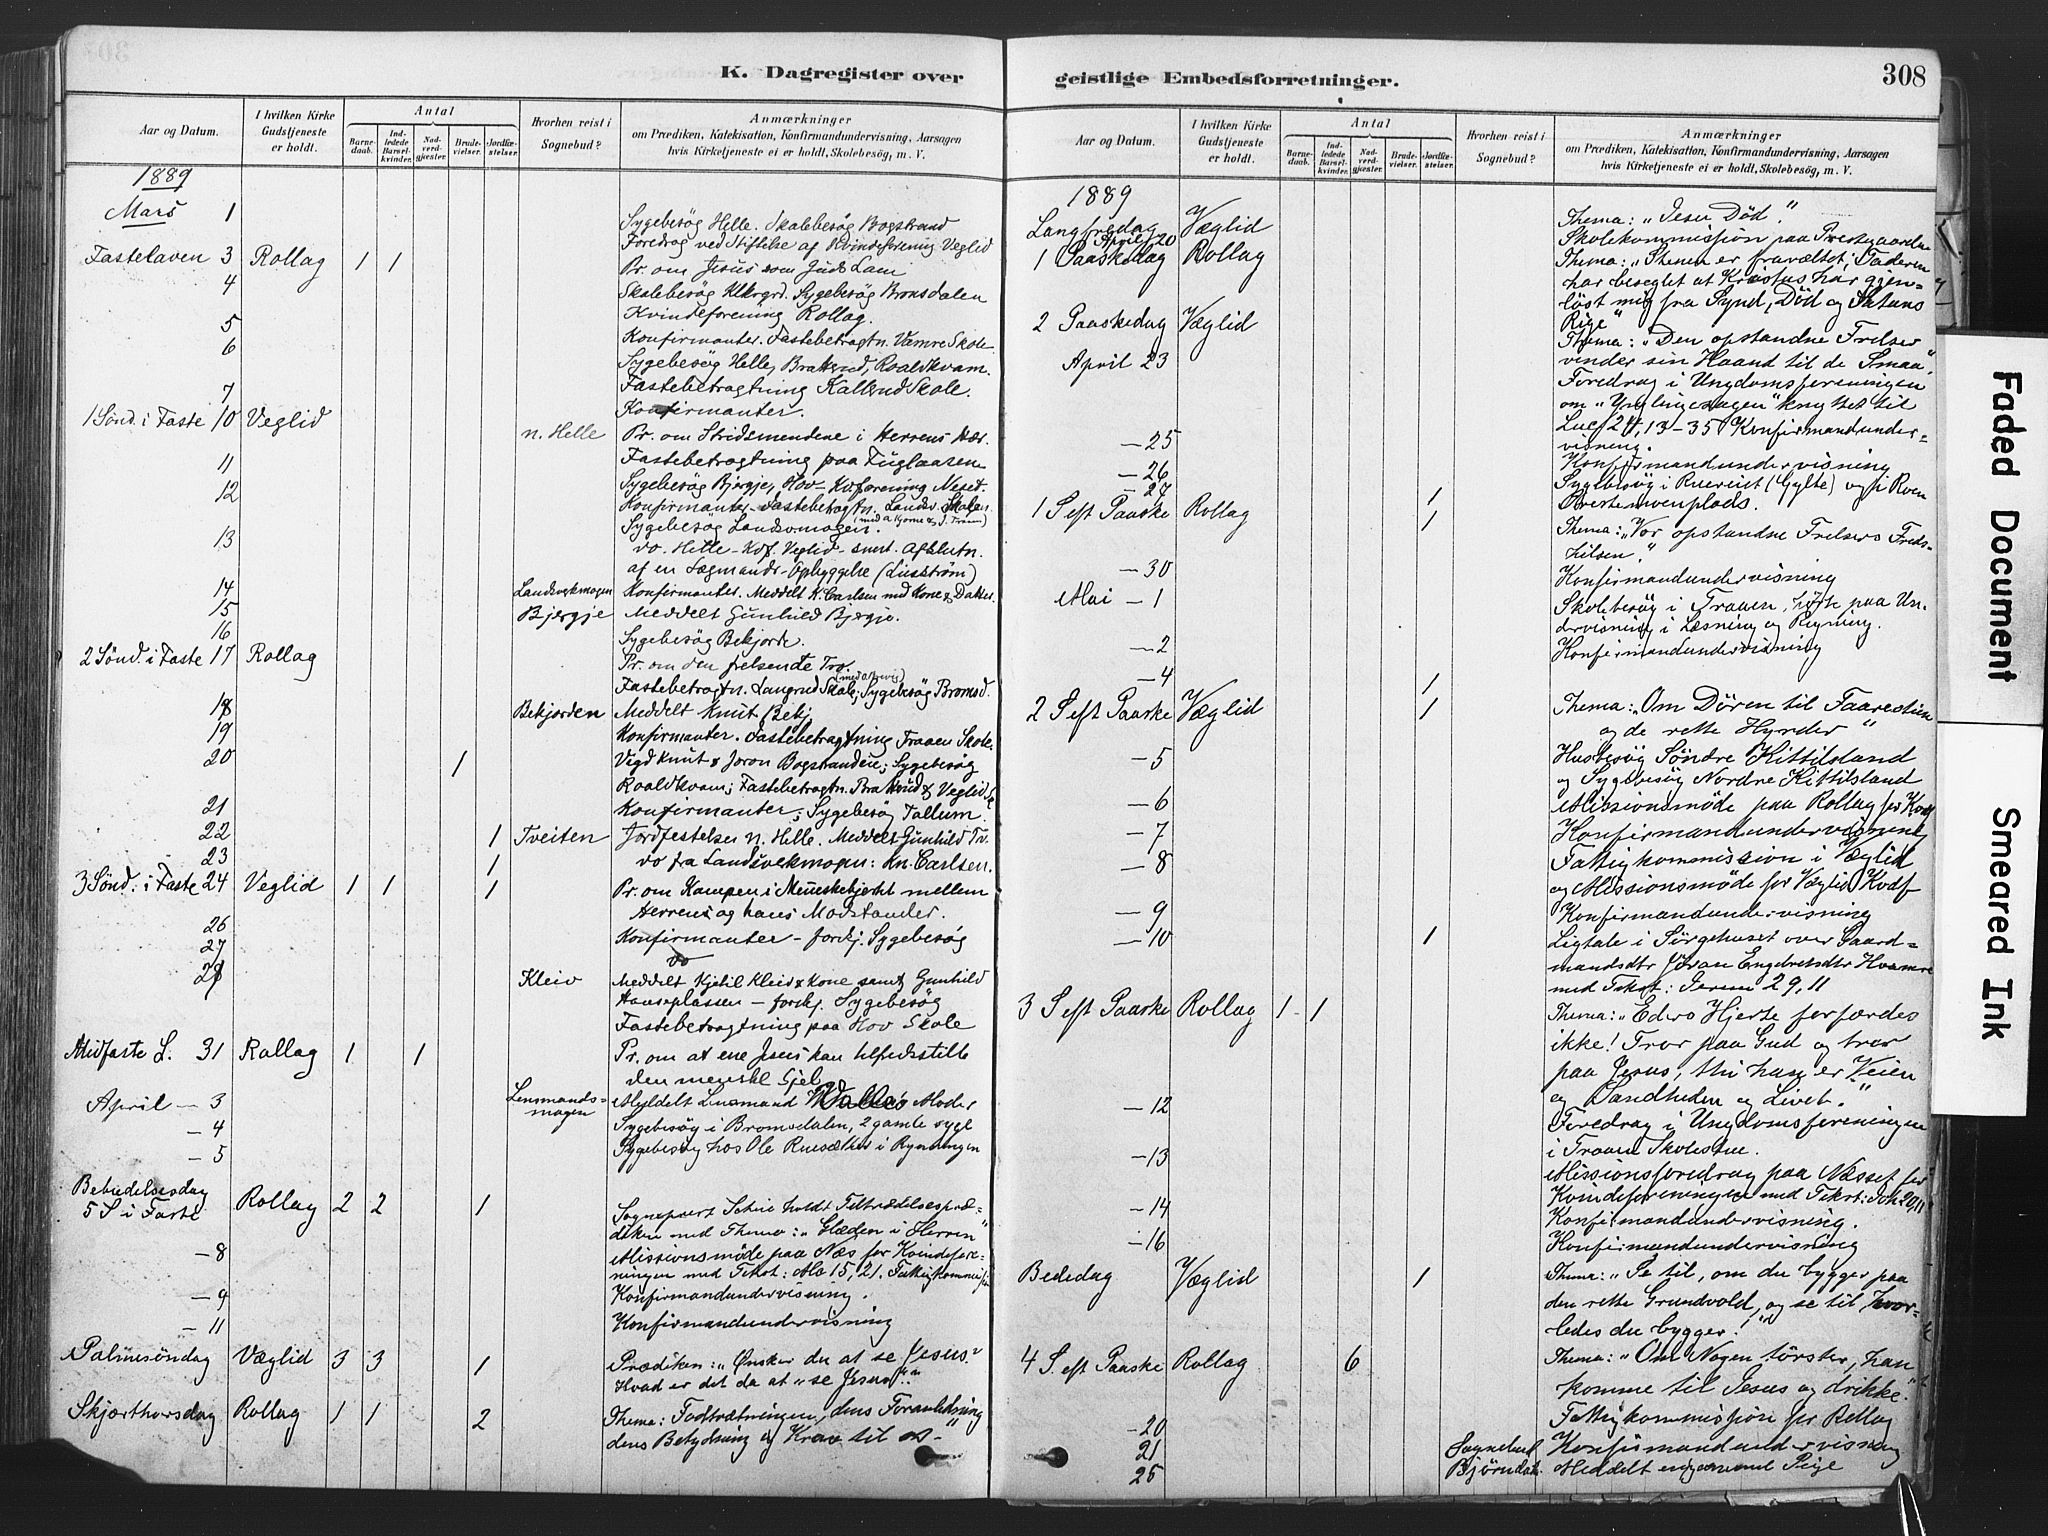 K. Dagregister over
Aar og Datum.
I hvilken Kirke Gudstjeneste er holdt.
Antal
Barne-daab.
Ind-ledede Barsel-kvinder.
Nad-verd-gjester.
Brude-vielser.
Jordfæ-stelser.
Hvorhen reist i Sognebud?
Anmærkninger
om Prædiken, Katekisation, Konfirmandundervisning, Aarsagen
hvis Kirketjeneste ei er holdt, Skolebesøg, m. V.
1889
Mars 1 Sygebesøg Helle. Skolebesøg Bogstrand
Foredrag ved Stiftelse af Kvindeforening Veglid
Fastelaven 3 Rollag 1 1 Pr. om Jesus som Guds Lam
4 Skolebesøg Sygebesøg Bromsdalen
Kvindeforening Rollag.
5 Konfirmanter. Fastebetragtn. Vamre Skole
6 Sygebesøg Helle, Bratterud, Roaldkvam.
Fastebetragtning Kallerud Skole.
7 Konfirmanter.
1 Sønd. i Faste 10 Veglid n. Helle Pr. om Stridsmendene i Herrens Hær.
Fastebetragtning paa Fuglaasen
11 Sygebesøg Bjergje, Hov - Kv.forening Neset.
12 Konfirmanter - Fastebetragtn. Landsv. Skolen.
Sygebesøg Landsvmogen.
13 do. Helle - Kdf. Veglid - Afslutn.
af en Lægmands-Opbyggelse
14 Landsvekmogen Konfirmanter. Meddelt K. Carlsen med Kone & Datter.
15 Bjergje Meddelt Gunhild Bjergje.
16 Sygebesøg Bekjorde.
2 Sønd. i Faste 17 Rollag Pr. om den frelsende Tro.
Fastebetragtn. Langrud Skole; Sygebesøg Bromsd.
18 Bekjorden Meddelt Knut Bekj.
19 Konfirmanter. Fastebetragtning Traaen Skole.
20 1 Vigd Knut & Joron Bogstrandeie; Sygebesøg
Roaldkvam; Fastebetragtn. Veglid
21 Konfirmanter; Sygebesøg Tallum.
22 1 Tveiten Jordfestelser n. Helle. Meddelt Gunhild Tv.
23 1 do fra Landsvekmogen: Kn. Carlsen.
3 Sønd. i Faste 24 Veglid 1 1 1 Pr. om Kampen i Menneskehjertet mellem
Herren og hans Modstander.
26 Konfirmanter - forskj. Sygebesøg
27 do
28 Kleiv Meddelt Kjetil Kleiv & Kone samt Gunhild
Hanseplassen - forskj. Sygebesøg
Fastebetragtning paa Hov Skole
Midfaste S. 31 Rollag 1 1 Pr. om at ene Jesus kan tilfredsstille
den menskl. Sjel
April - 3 Lensmands-mogen Meddelt Lensmand Moder
- 4 Sygebesøg i Bromsdalen, 2 gamle syge
- 5 Sygebesøg hos Ole i
Bebudelsesdag
5 S i Faste Rollag 2 2 1 Sognepræst holdt Tiltrædelsespræ-
diken med Thema: „Glæden i Herren"
- 8 Missionsmøde paa Næs for Kvindefore-
ningen med Tekst: 15, 21. Fattigkommission
- 9 Konfirmandundervisning.
- 11 Konfirmandundervisning
Palmesøndag Væglid 3 3 1 Prædiken: „Ønsker du at se Jesus?
Hvad er det da at „se Jesus"?"
Skjærthorsdag Rollag 1 1 2 Thema: Fodtvætningen, dens Foranledning
dens Betydning og Krav til os -"
geistlige Embedsforretninger.
308
Aar og Datum.
I hvilken Kirke Gudstjeneste er holdt.
Antal
Barne-daab.
Ind-ledede Barsel-kvinder.
Nad-verd-gjester.
Brude-vielser.
Jordfæ-stelser.
Hvorhen reist i Sognebud?
Anmærkninger
om Prædiken, Katekisation, Konfirmandundervisning, Aarsagen
hvis Kirketjeneste ei er holdt, Skolebesøg, m. V.
1889
Langfredag Væglid Thema: „Jesu Død".
April 20 Skolekommission paa Prestegaarden
1 Paaskedag Rollag Thema: „Stenen er fravæltet; Faderen
har beseglet at Kristus har gjen-
løst mig fra Synd, Død og Satans
Rige"
2 Paaskedag Væglid Thema: „Den opstandne Frelser
vinder sin Haand til de Smaa".
April 23 Foredrag i Ungdomsforeningen
om „Ynglingesagen" knyttet til
Luc. 24, 13-35 Konfirmandunder-
visning.
- 25 Konfirmandundervisning
- 26 Sygebesøg i Rueneist (Gylte) og i Roen
- 27 1 Prestemoenplads.
1 S eft Paaske Rollag 1 Thema: „Vor opstandne Frelsers Freds-
hilsen"
- 30 Konfirmandundervisning
Mai - 1 Skolebesøg i Traaen, hørte paa Un-
dervisning i Læsning og Regning.
- 2 Konfirmandundervisning
- 4 1
2 S eft Paaske Væglid 1 Thema: „Om Døren til Faarestien
og de rette Hyrder"
- 5 Husbesøg Søndre Kittilsland
og Sygebesøg Nordre Kittilsland
- 6 Missionsmøde paa Rollag for Kvdf
- 7 Konfirmandundervisning
- 8 Fattigkommission i Væglid
og Missionsmøde for Væglid Kvdf
- 9 Konfirmandundervisning
- 10 1 Ligtale i Sørgehuset over Gaard-
mandsdtr Jöran Engebretsdtr Hvamre
med Tekst: Jerem 29, 11
3 S eft Paaske Rollag 1 - 1 Thema: „Eders Hjerte forfærdes
ikke! Tror paa Gud og tror
paa Jesus, thi han er Veien
og Sandheden og Livet."
- 12 Foredrag i Ungdomsforeningen
i Traaen Skolestue.
- 13 Missionsforedrag paa Næsset for
Kvindeforeningen med Tekst: Joh 20, 11
- 14 Konfirmandundervisning.
- 16 Konfirmandundervisning
Bededag Væglid 1 Thema: „Se til, om du bygger paa
den rette Grundvold, og se til, hvor-
ledes du bygger!"
4 S. eft Paaske Rollag 6 Thema: „Om Nogen tørster, han
komme til Jesus og drikke."
- 20 Fattigkommission for Rollag
21 Sognebud Konfirmandundervisning
25 Bjørndal. Meddelt Pige
Faded Document
Smeared Ink